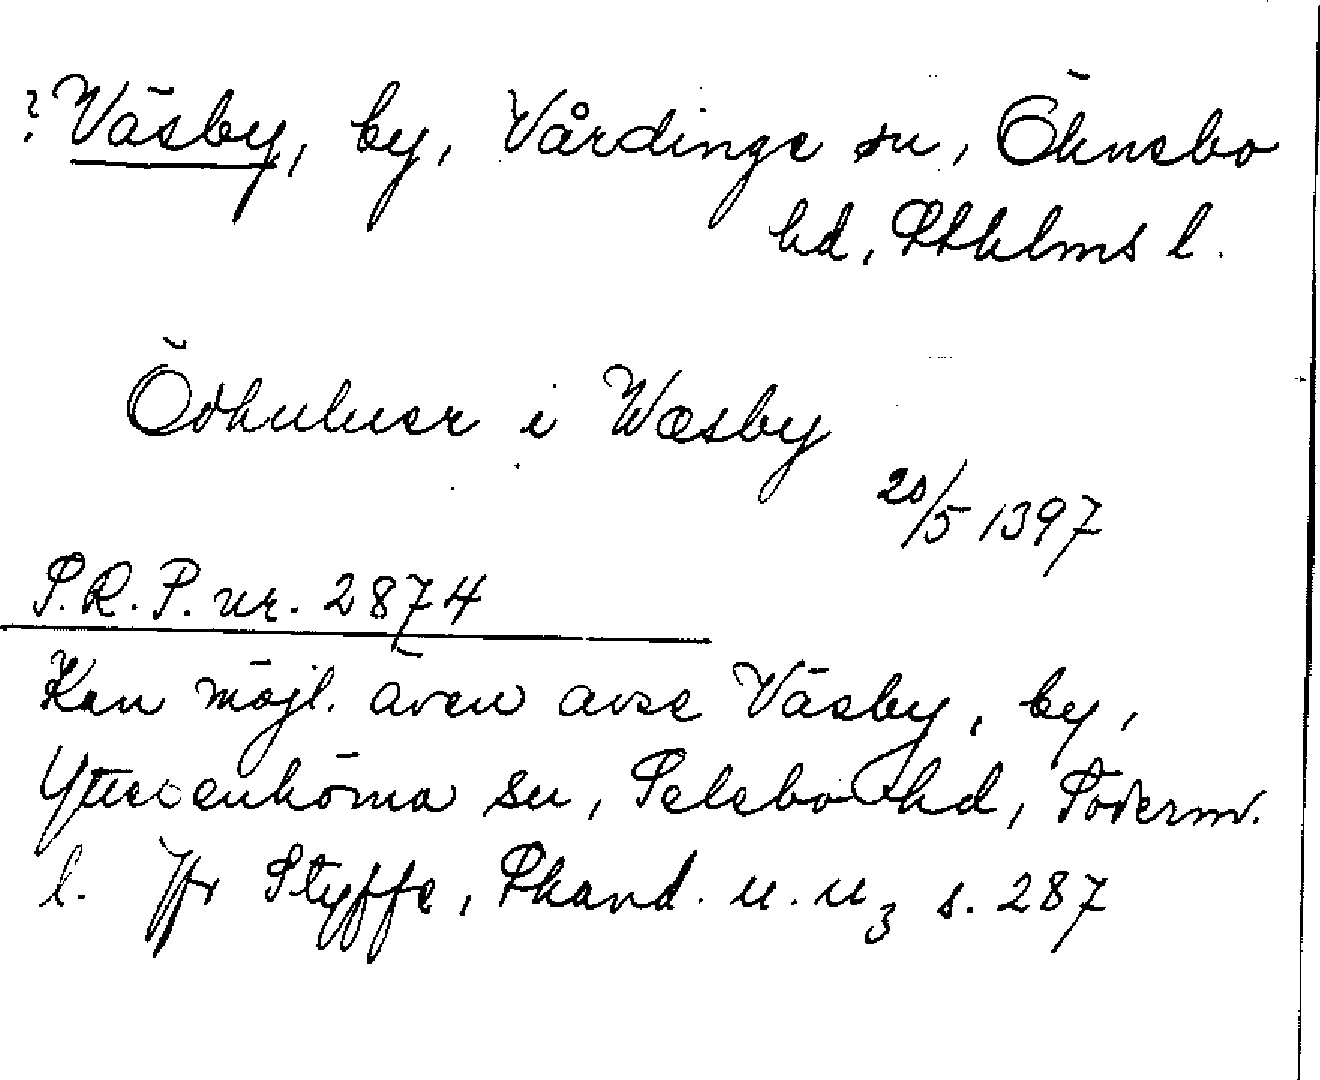 ? Väsby, by, Vårdinge sn, Öknebo
hd, Sthlms l.
i Wæsby
20/5 1397
S.R.P. nr. 2874
Kan möjl. även avse Väsby, by,
Ytterenhörna sn, Selebo hd, Söderm.
l. Jfr Styffe, Skand. u. u3 s. 287